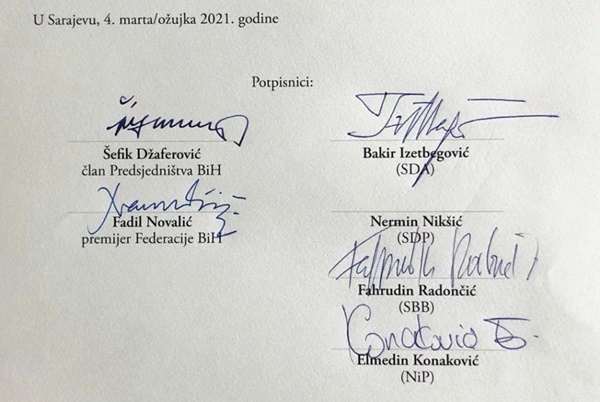 U Sarajevu, 4. marta/ožujka 2021. godine
Potpisnici:
Šefik Džaferović
član Predsjedništva BiH
Fadil Novalić
premijer Federacije BiH
Bakir Izetbegović
(SDA)
Nermin Nikšić
(SDP)
Fahrudin Radončić
(SBB)
Konaković E.
Elmedin Konaković
(NiP)